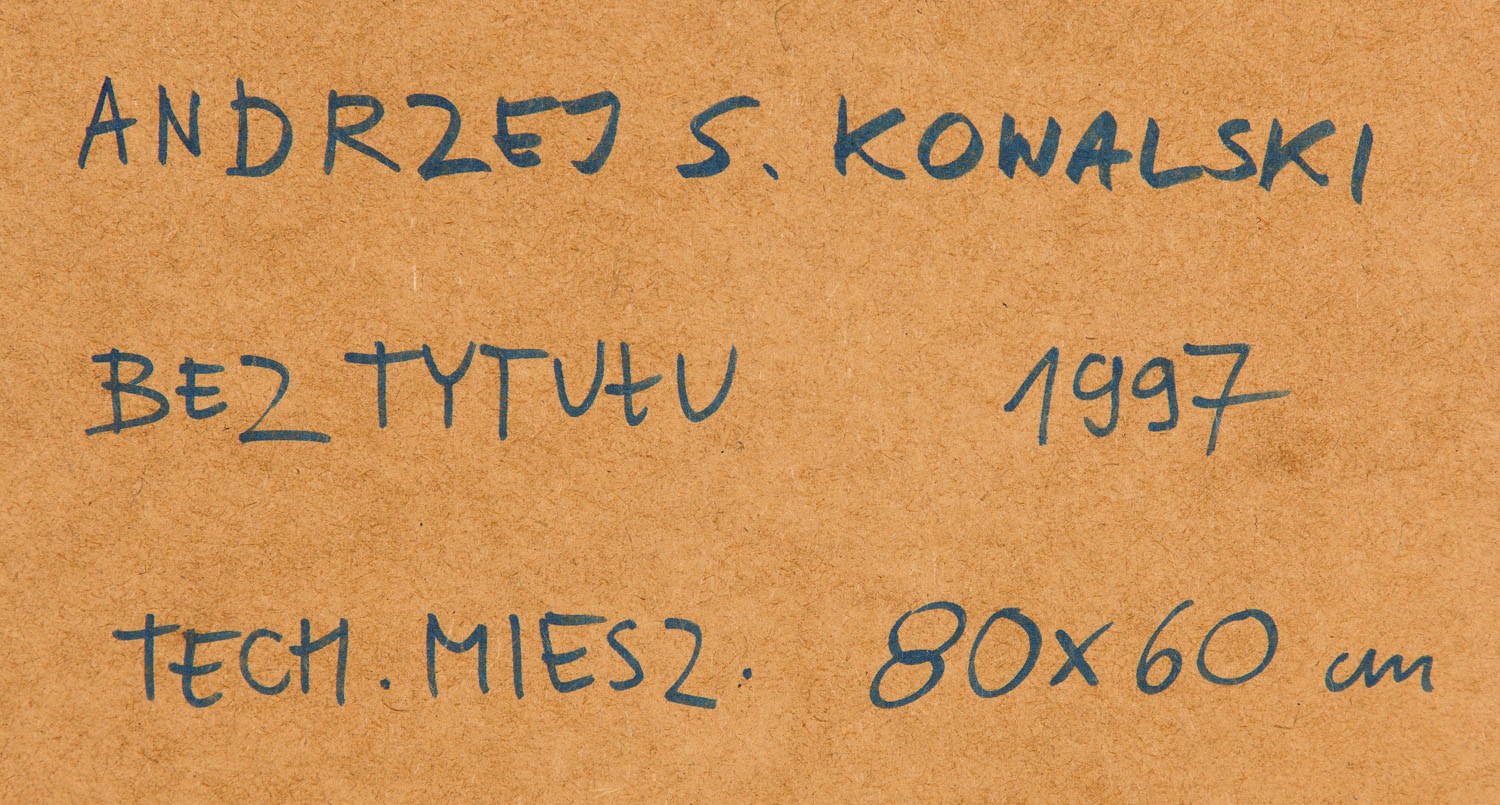 ANDRZEJ S. KOWALSKI
BEZ TYTUŁU 1997
TECH. MIESZ. 80x60 cm